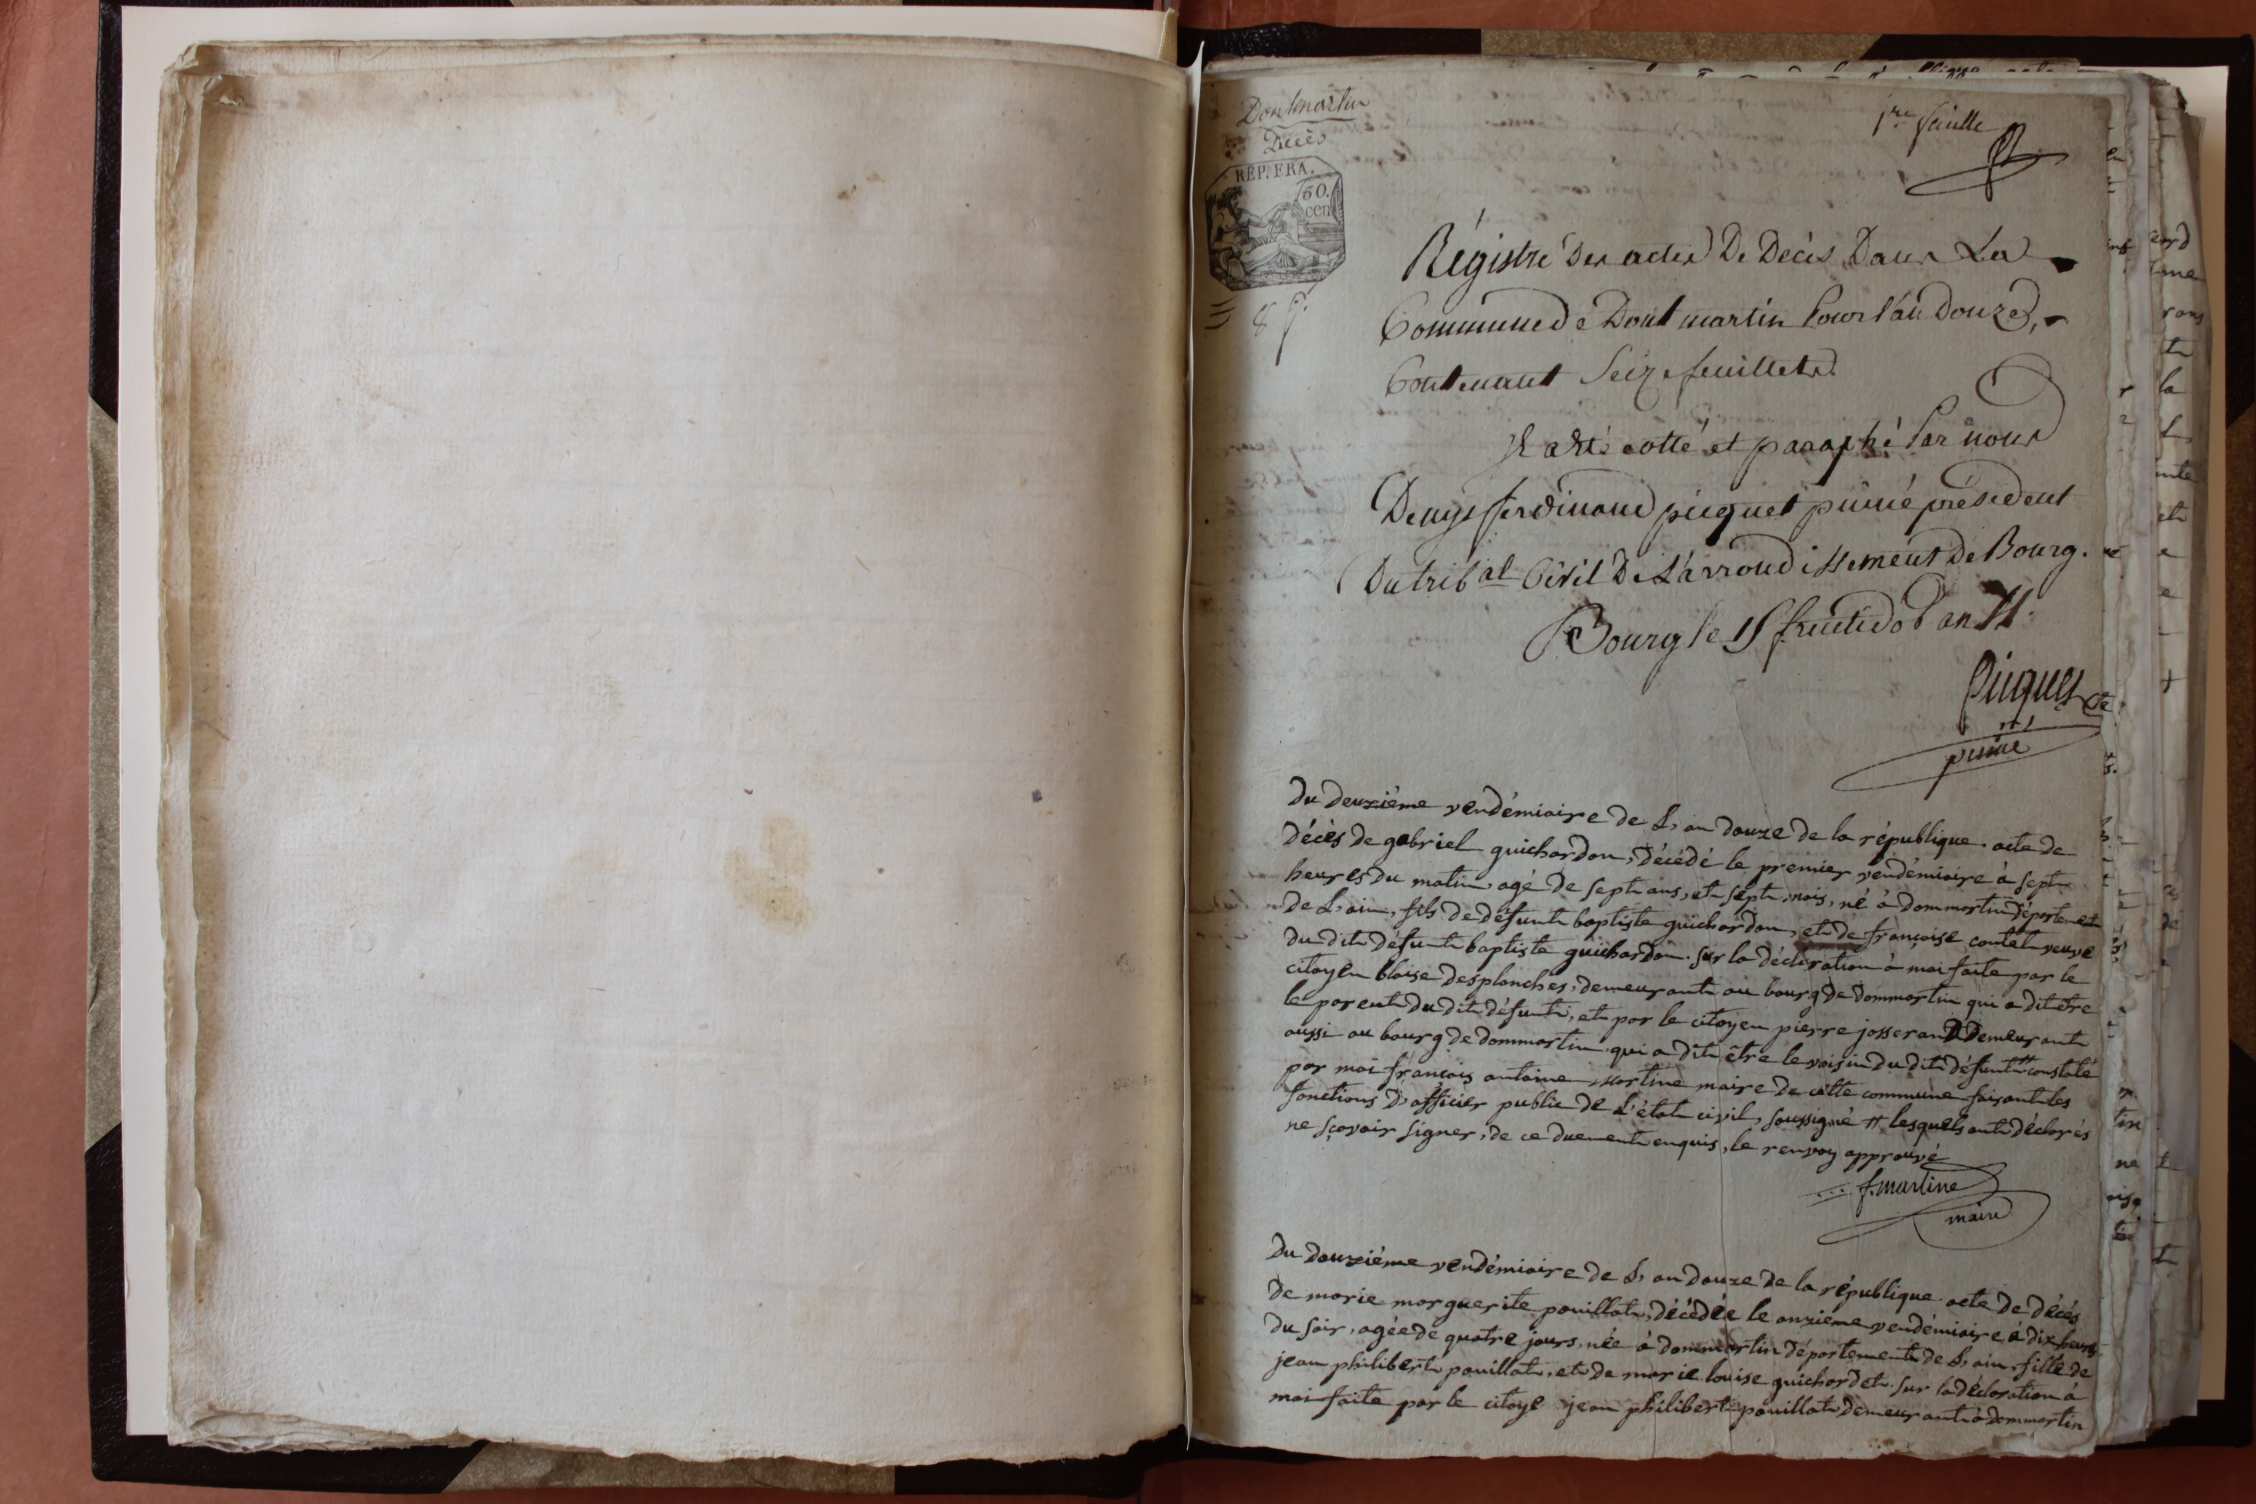 Dontmartin
Décès
REP. FRA.
60.
cen
1re feuille
Régistre Des actes De Décès Dans La
Commune de Dontmartin Pour l'an Douze,
Contenant Seize feuillets.
Il a été cotté et paraphé Par nous
Denys ferdinand picquet puiné président
Du tribal Civil De L'arrondissement De Bourg.
Bourg le 15 fructidor an 11.
Picquet
puiné
Du Deuxiéme vendémiaire de L'an douze de la république. acte de
Décès de gabriel guichardon, Décédé le premier vendémiaire à sept
heures du matin, agé De sept ans, et sept mois, né à dommartin Département
De L'ain, fils de défunt baptiste guichardon, et de françoise contet veuve
du dit défunt baptiste guichardon. sur la déclaration à moi faite par le
citoyen blaise desplanches, demeurant au bourg de dommartin qui a dit être
le parent du dit défunt, et par le citoyen pierre josserand Demeurant
aussi au bourg de dommartin qui a dit être le voisin du dit défunt # constaté
par moi françois antoine martine maire de cette commune faisant les
fonctions D'officier public de L'état civil, soussigné # lesquels ont déclarés
ne sçavoir signer, de ce duement enquis, le renvoy approuvé
f. martine
maire
Du douziéme vendémiaire de L'an douze de la république acte de décès
De marie marguerite pouillat, décédée le onzieme vendémiaire à dix heures
Du soir, agée de quatre jours, née à dommartin département de L'ain, fille de
jean philibert pouillat, et de marie louise guichardet. sur la déclaration à
moi faite par le citoye jean philibert pouillat demeurant à dommartin